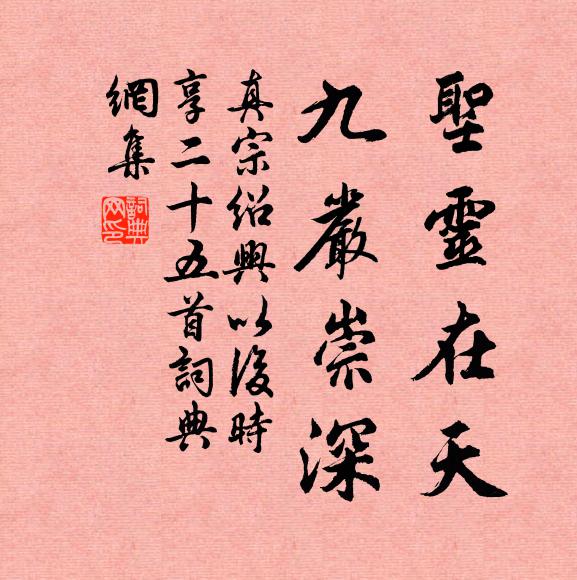 聖靈在天
九嚴崇深
真宗紹興以後時
享二十五首詞典
網集
詞典網印